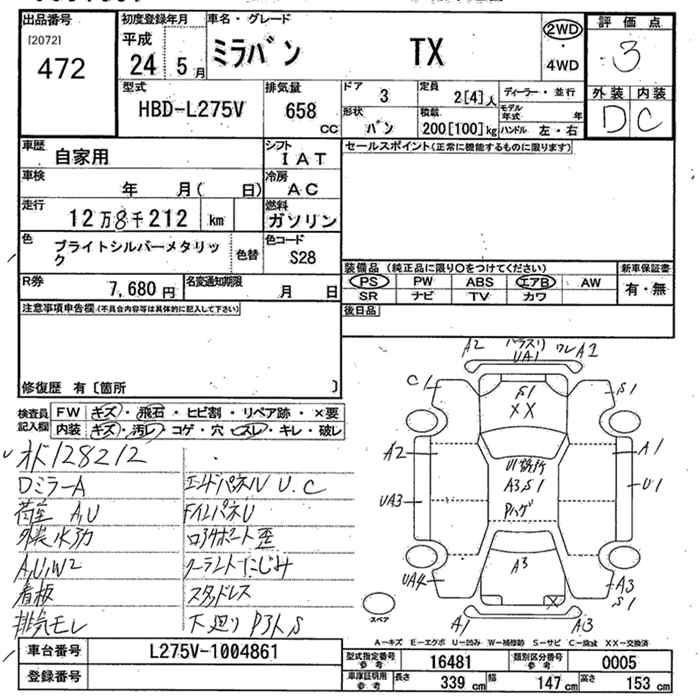 出品番号
[2072]
472
初度登録年月
平成
24 5月
車名・グレード
ミラバン TX
2WD
・
4WD
評価点
3
外装 内装
D C
型式
HBD-L275V
排気量
658
cc
ドア
3
定員
2[4]人
形状
バン
積載
200[100]kg
ディーラー・並行
モデル年式 年
ハンドル 左・右
車歴
自家用
シフト
IAT
セールスポイント(正常に機能するものに限ります)
車検
年 月( 日)
冷房
AC
走行
12万8千212 km
燃料
ガソリン
色
ブライトシルバーメタリック
色替
色コード
S28
装備品(純正品に限り○をつけてください)
新車保証書
PS PW ABS エアB AW
SR ナビ TV カワ
有・無
R券
7,680円
名変通知期限
月 日
後日品
注意事項申告欄(不具合内容等は具体的に記入して下さい)
修復歴 有〔箇所 〕
検査員
記入欄
FW キズ・飛石・ヒビ割・リペア跡・×要
内装 キズ・汚レ・コゲ・穴・スレ・キレ・破レ
128212
DミラーA
荷室 A,U
A,U,W2
看板
排気モレ
エンドパネルU.C
FインパネU
ロアサポート歪
クーラントにじみ
スタッドレス
下廻りP3トS
A2
UA1
ワレ A2
C1
S1
XX
S1
A2
A1
U1
A3,S1
Pハゲ
UA3
U1
UA4
A3
A3
S1
X
A1
A3
スペア
A-キズ E-エクボ U-凹み W-補修跡 S-サビ C-腐蝕 XX-交換済
車台番号
L275V-1004861
登録番号
型式指定番号
参考
16481
類別区分番号
参考
0005
車庫証明用
参考
長さ
339 cm
幅
147 cm
高さ
153 cm